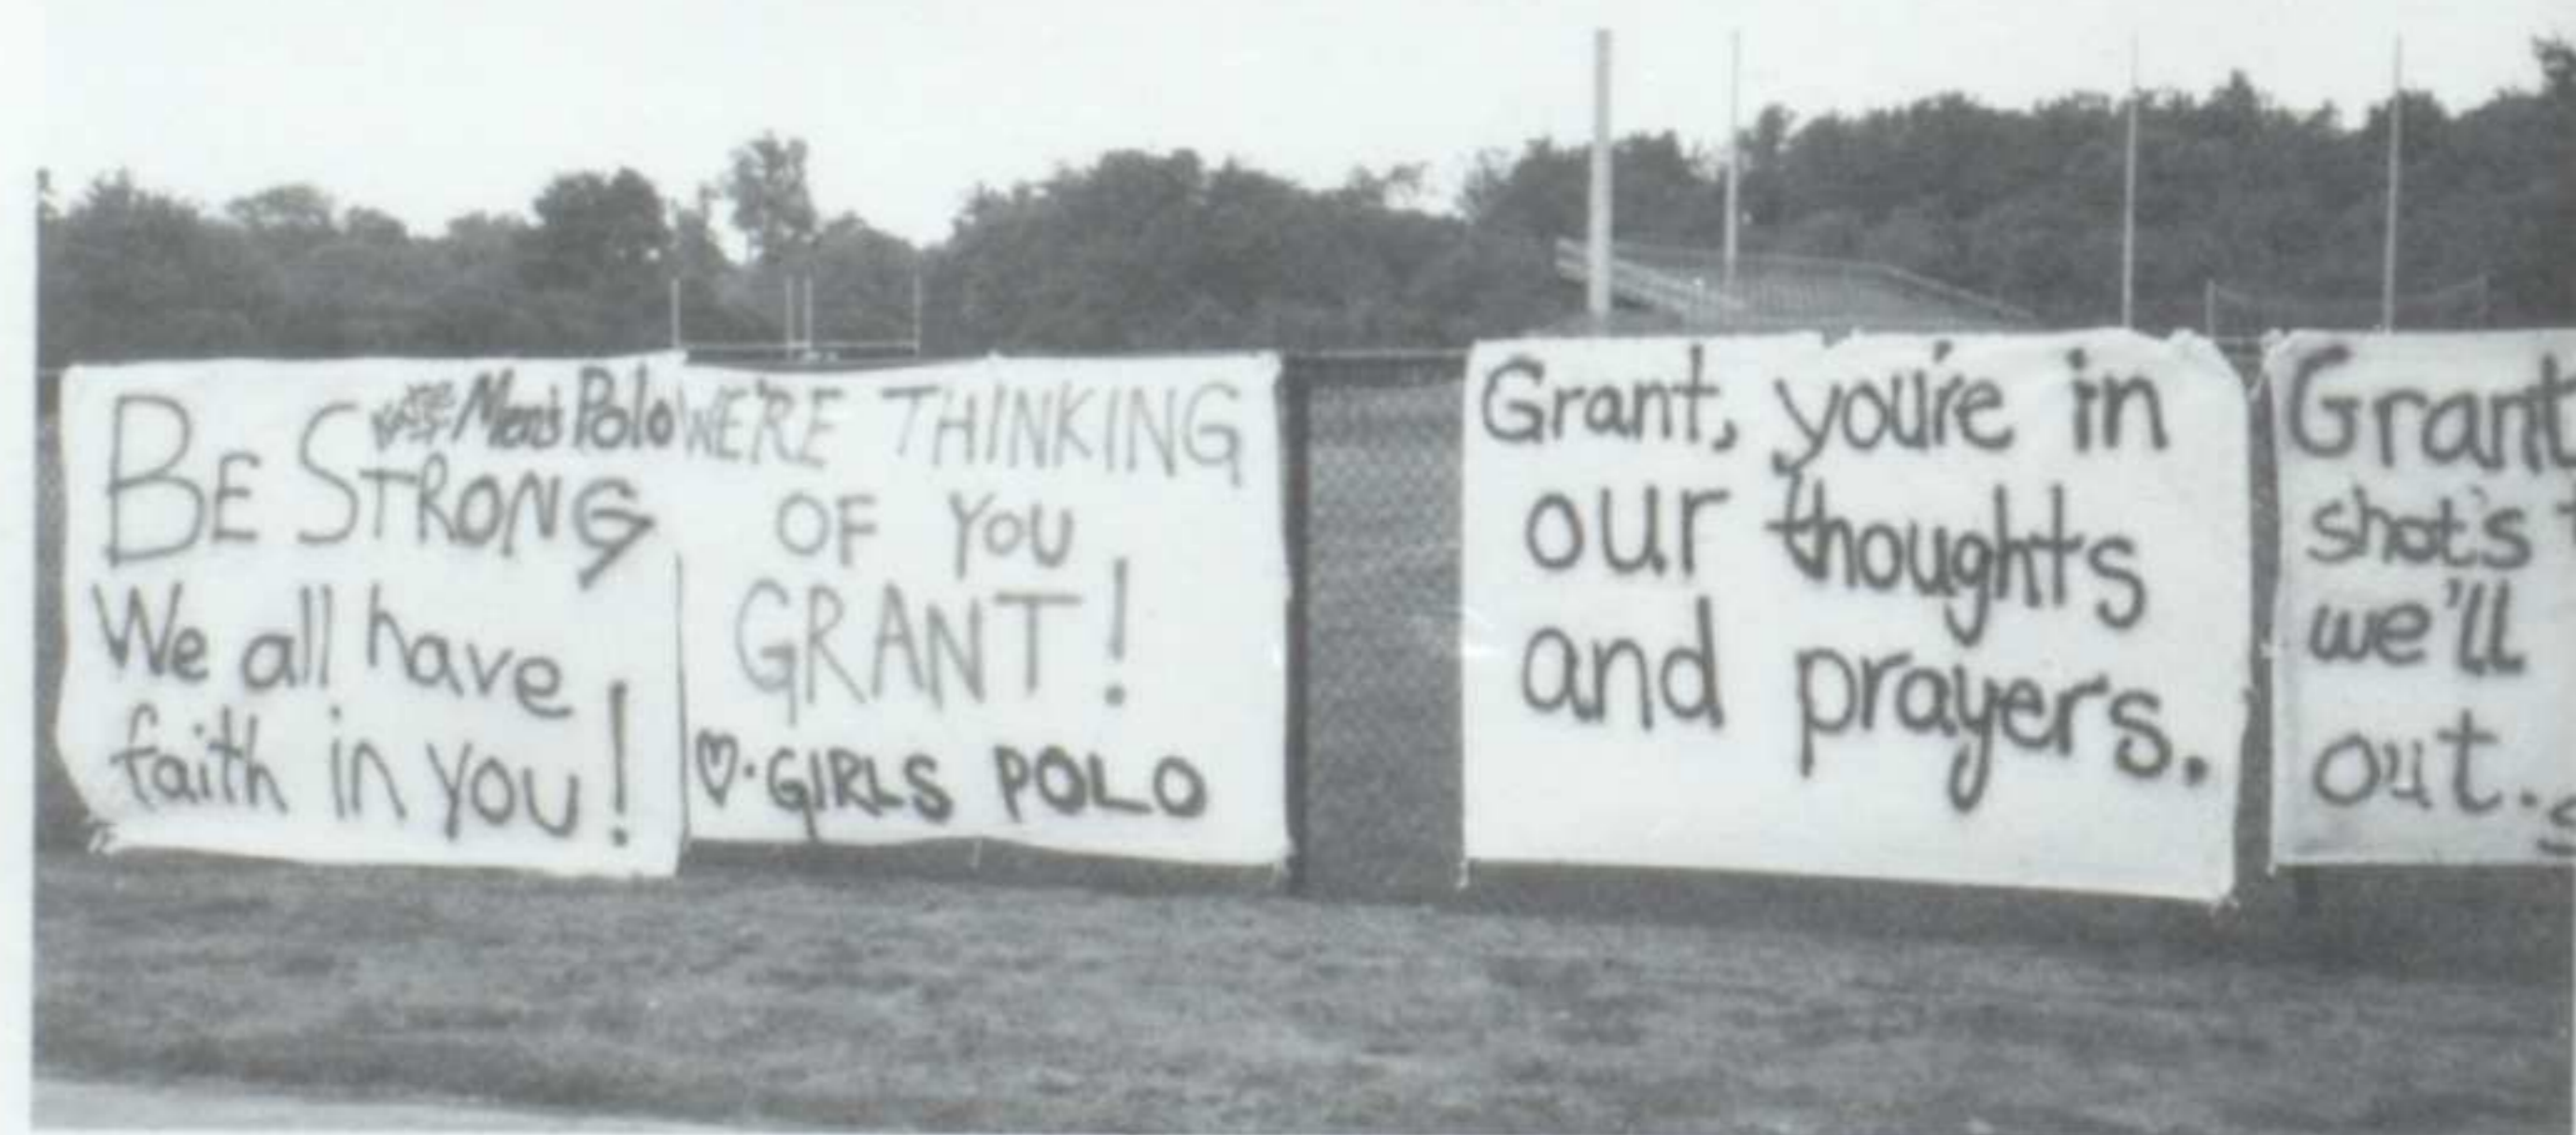 BE STRONG
Men's Polo
We all have
faith in you!
WE'RE THINKING
OF YOU
GRANT!
♡-GIRLS POLO
Grant, you're in
our thoughts
and prayers.
Grant
shot's
we'll
out.